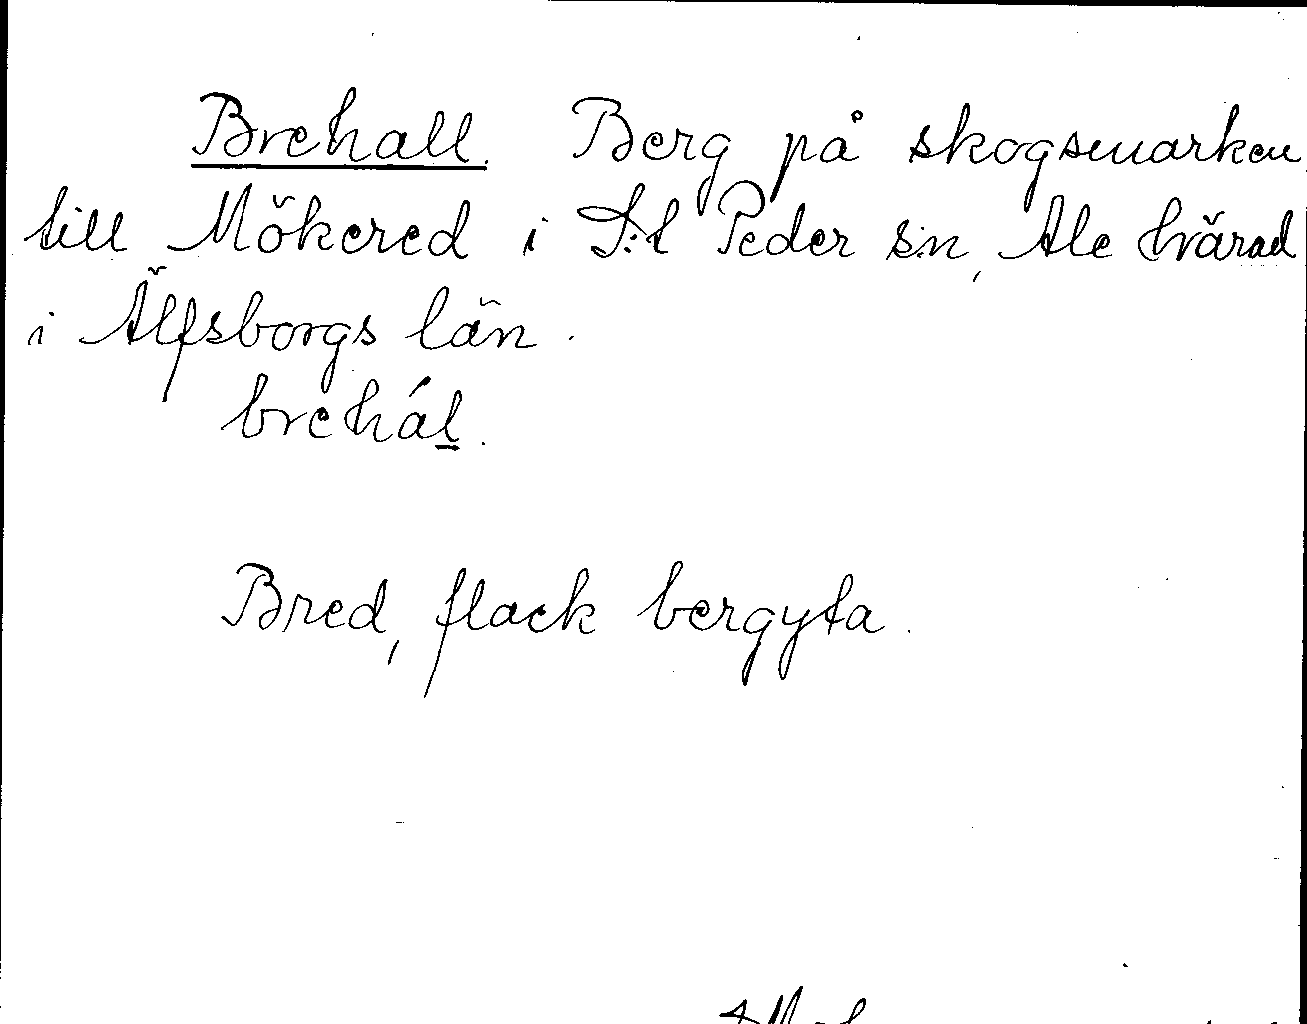 Brehall. Berg på skogsmarken
till Mökered i S:t Peder s:n, Ale härad
i Älfsborgs län.
brehál.
Bred, flack bergyta.